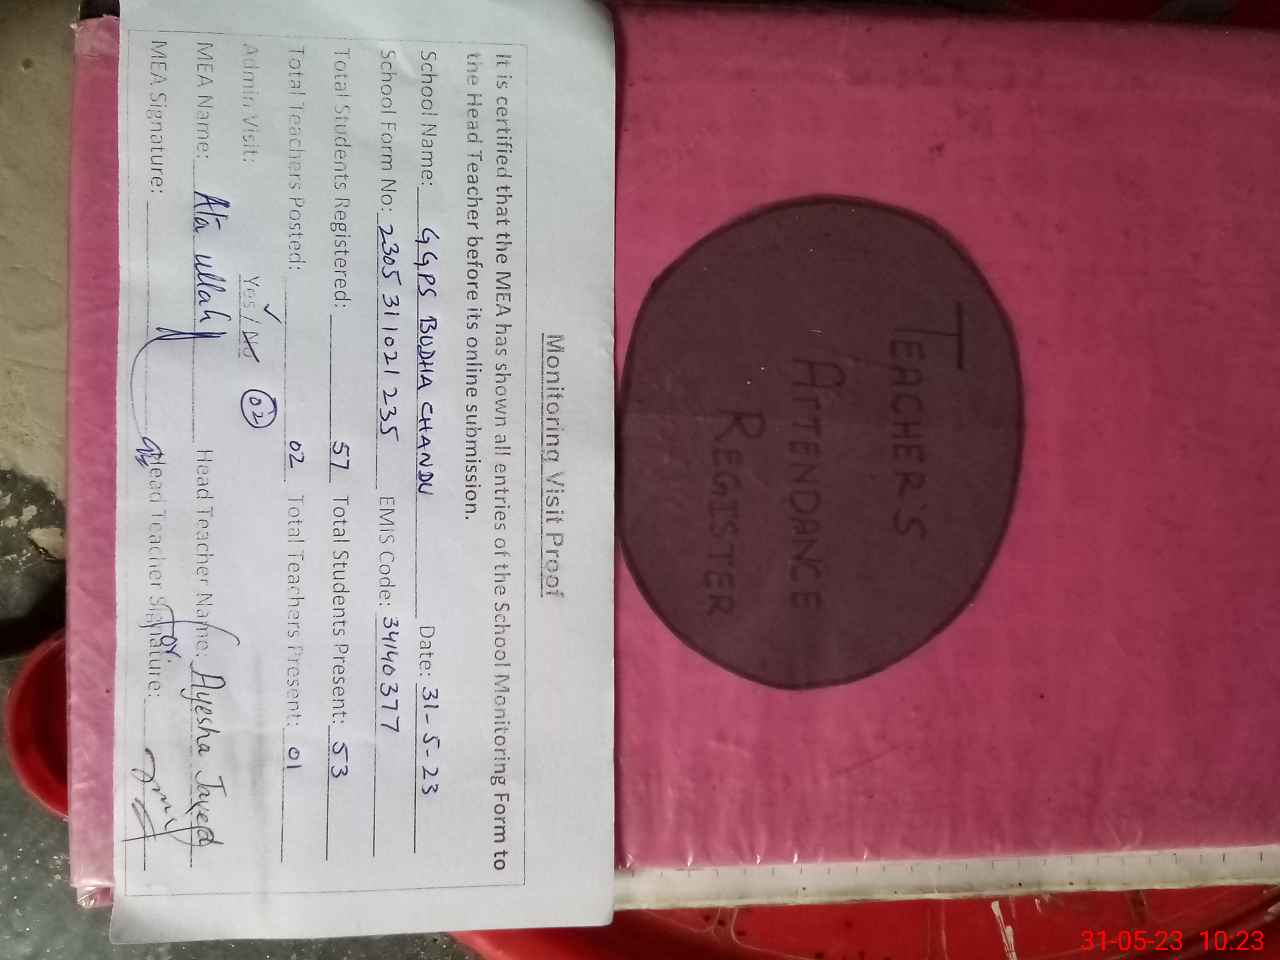 TEACHER'S
ATTENDANCE
REGISTER
Monitoring Visit Proof
It is certified that the MEA has shown all entries of the School Monitoring Form to
the Head Teacher before its online submission.
School Name: GGPS BUDHA CHANDU Date: 31-5-23
School Form No: 2305 311021 235 EMIS Code: 34140377
Total Students Registered: 57 Total Students Present: 53
Total Teachers Posted: 02 Total Teachers Present: 01
Admin Visit: Yes / No 02
MEA Name: Ata ullah Head Teacher Name: Ayesha Javed
MEA Signature: Head Teacher Signature:
31-05-23 10:23